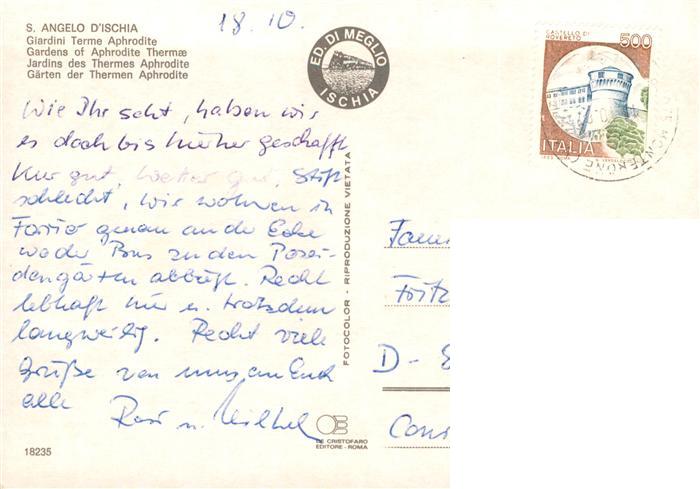 18. 10.
S. ANGELO D'ISCHIA
Giardini Terme Aphrodite
Gardens of Aphrodite Thermæ
Jardins des Thermes Aphrodite
Gärten der Thermen Aphrodite
ED. DI MEGLIO
ISCHIA
CASTELLO DI
ROVERETO
500
ITALIA
Wie Ihr seht, haben wir
es doch bis hierher geschafft.
Kur gut, Wetter gut, Stift
schlecht, wir wohnen in
Forio genau an der Ecke
wo der Bus zu den Posei-
dongärten abbiegt. Recht
lebhaft hier u. trotzdem
langweilig. Recht viele
Grüße von uns an Euch
alle
Rosi u.
FOTOCOLOR - RIPRODUZIONE VIETATA
Fam
Fritz
D -
DE CRISTOFARO
EDITORE - ROMA
18235